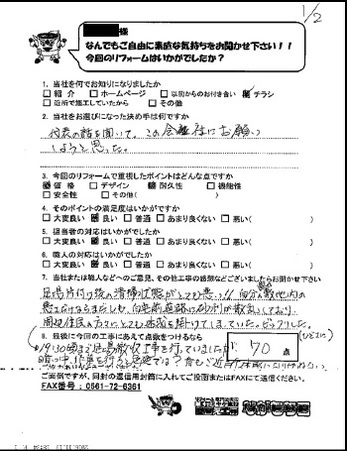 1/2
様
なんでもご自由に素直な気持ちをお聞かせ下さい！！
今回のリフォームはいかがでしたか？
1. 当社を何でお知りになりましたか
□紹介 □ホームページ □以前からのお付き合い ☑チラシ
□近所で施工していたから □その他
2. 当社をお選びになった決め手は何ですか
代表の話を聞いて、この会社にお願い
しようと思った。
3. 今回のリフォームで重視したポイントはどんな点ですか
☑価格 □デザイン ☑耐久性 □機能性
□安全性 □その他( )
4. そのポイントの満足度はいかがですか
□大変良い ☑良い □普通 □あまり良くない □悪い( )
5. 担当者の対応はいかがでしたか
□大変良い ☑良い □普通 □あまり良くない □悪い( )
6. 職人の対応はいかがでしたか
□大変良い ☑良い □普通 □あまり良くない □悪い( )
7. 当社または職人などへのご意見、その他工事の感想などございましたらお聞かせ下さい
足場片付け後の清掃状態がとても悪い!! 自分の敷地内の
周辺住民の方々にとても迷惑を掛けてしまっていた。ビックリした。
8. 最後に今回の工事にあえて点数をつけるなら
70 点
ご面倒ですが、同封の返信用封筒に入れてご投函またはFAXにて送信ください。
FAX番号：0561-72-6361